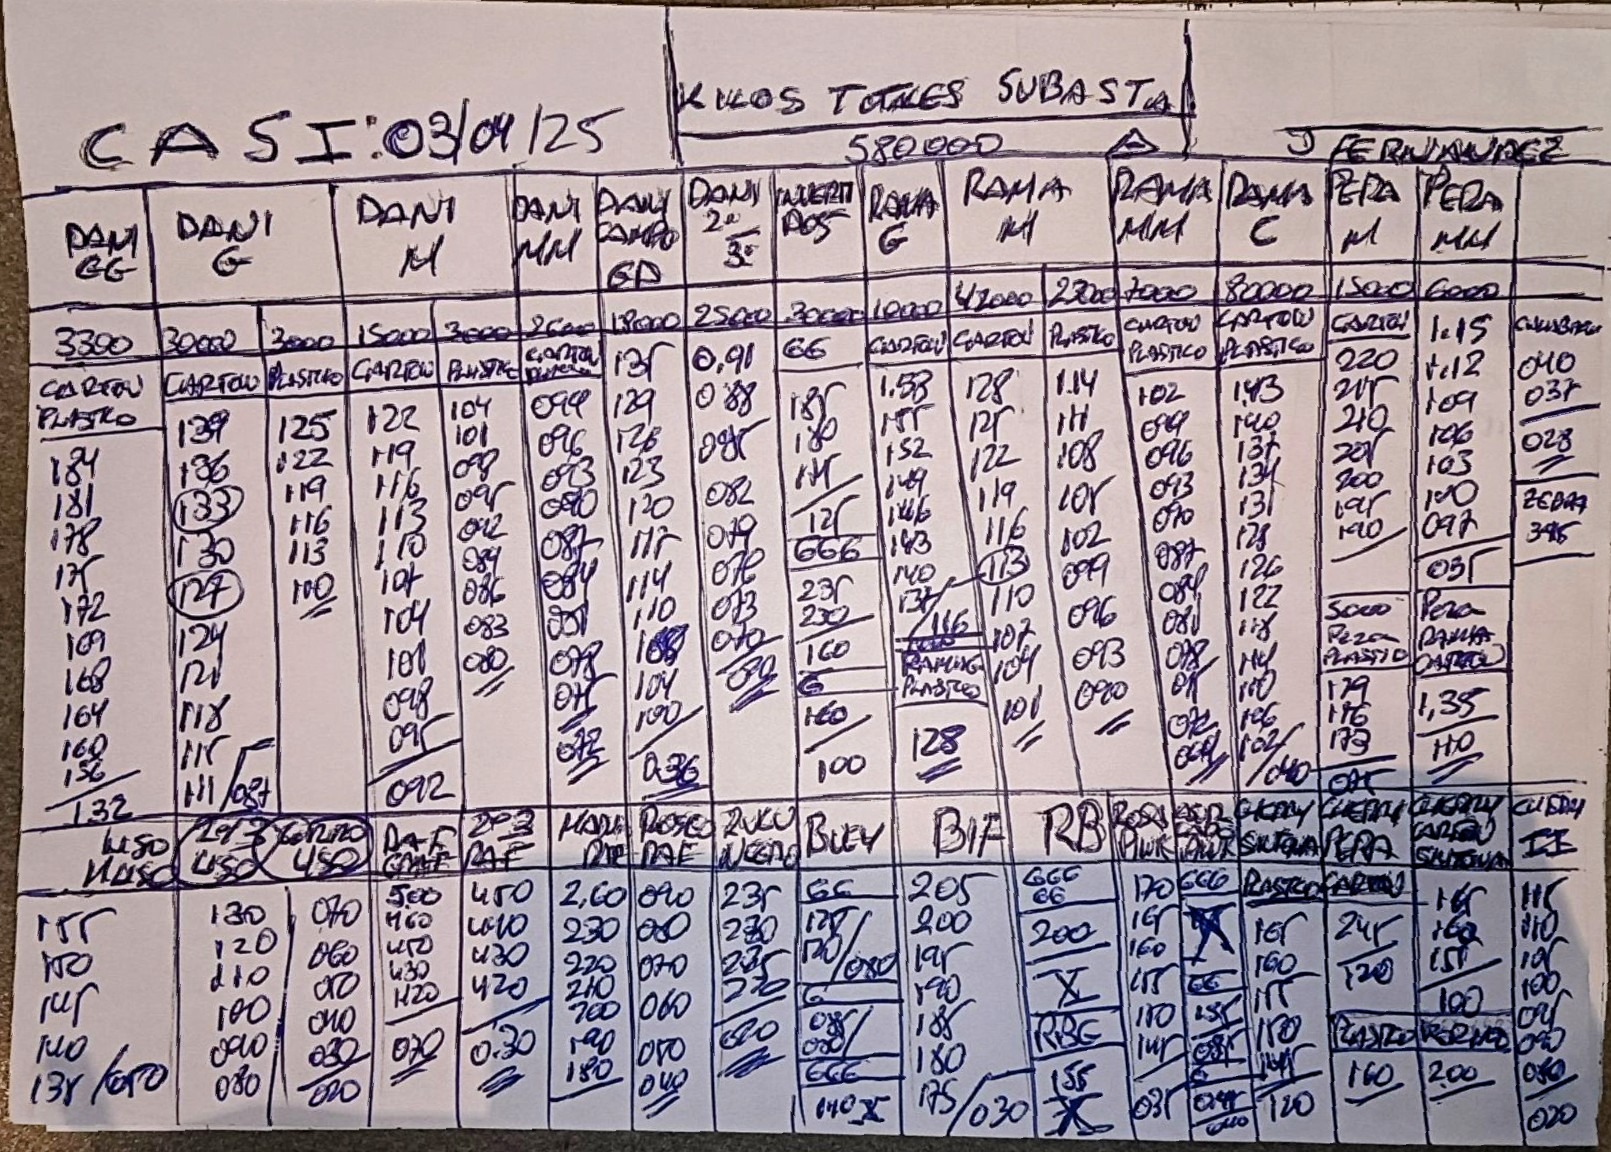 KILOS TOTALES SUBASTA
CASI: 03/04/25
580000
J FERNANDEZ
DANI GG
DANI G
DANI M
DANI MM
DANI CAMPO GD
DANI 2ª 3ª
INVERTI DOS
RAMA G
RAMA M
RAMA MM
RAMA C
PERA M
PERA MM
3300 30000 3000 15000 3000 2600 18000 25000 30000 10000 42000 23000 7000 80000 15000 6000
CARTON PLASTICO
184
181
178
175
172
169
168
164
160
156
132
CARTON
139
136
133
130
127
124
121
118
115
111/087
PLASTICO
125
122
119
116
113
100
CARTON
122
119
116
113
110
107
104
101
098
095
092
PLASTICO
104
101
098
095
092
089
086
083
080
CARTON
099
096
093
090
087
084
081
078
075
072
135
129
126
123
120
117
114
110
104
100
0.36
0.91
088
085
082
079
076
073
070
66
185
180
175
125
666
235
230
160
6
160
100
CARTON
1.58
155
152
149
146
143
140
137/116
RAMA G
PLASTICO
128
CARTON
128
125
122
119
116
113
110
107
104
101
PLASTICO
1.14
111
108
105
102
099
096
093
090
CARTON
PLASTICO
102
099
096
093
090
087
084
081
078
075
072
CARTON
PLASTICO
1.43
140
137
134
131
128
126
122
118
114
110
106
102/040
CARTON
220
215
210
205
200
195
190
5000
PERA
PLASTICO
179
176
173
075
1.15
1.12
109
106
103
100
097
035
PERA
CARTON
1,35
110
040
037
028
ZEBRA
395
LISO
155
150
145
140
135/050
2ª 3
LISO
130
120
110
100
090
080
CORTITO
LISO
070
060
050
040
030
020
RAF
500
460
450
430
420
070
2º3
RAF
450
440
430
420
0.30
2,60
230
220
210
200
190
180
ROSCO
RAF
090
080
070
060
050
040
ZULU
NEGRO
235
230
225
220
BUEY
66
125
120/080
6
666
BIF
205
200
195
190
185
180
175/030
RB
666
66
200
X
RBG
155
X
ROSA
170
165
160
155
150
145
035
666
X
66
155
085
6
CHERRY
PLASTICO
165
160
155
150
145
120
CHERRY
PERA
CARTON
245
120
PLASTICO
160
CHERRY
CARTON
165
160
155
100
200
CHERRY
II
115
110
105
100
095
090
080
020